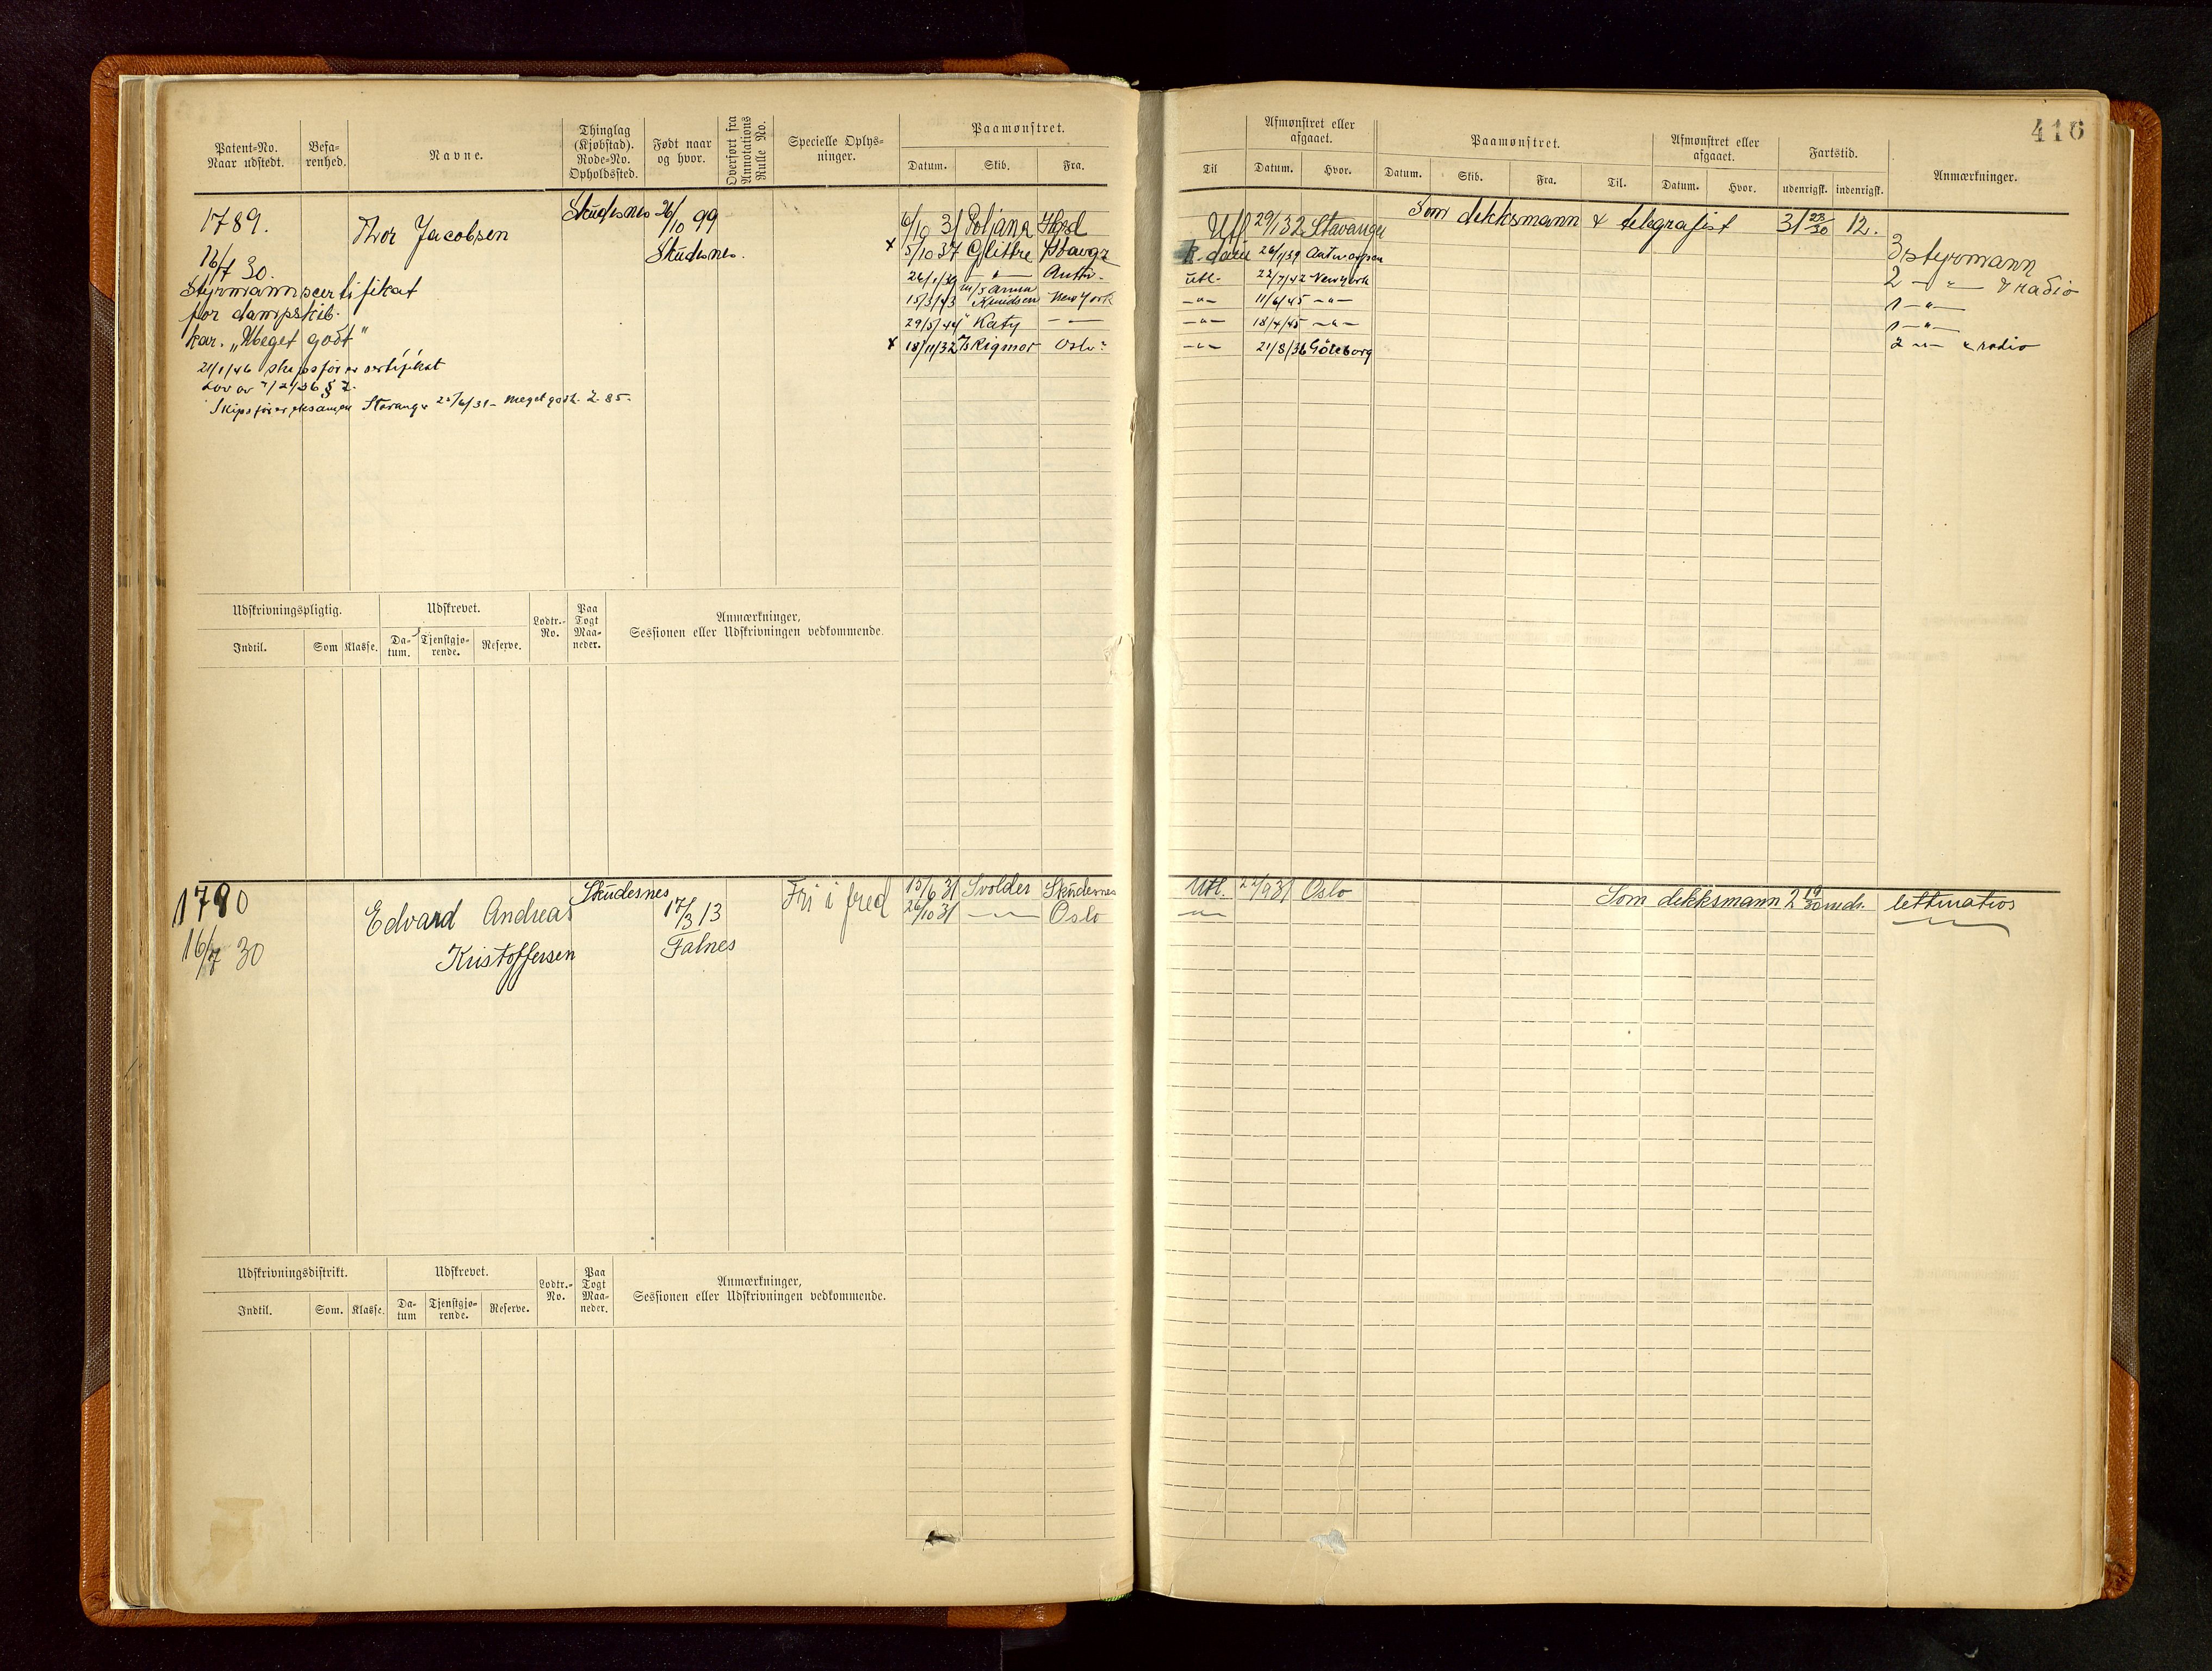 416
Patent-No. Naar udstedt.
Befa-renhed.
Navne.
Thinglag (Kjøbstad). Rode-No. Opholdssted.
Født naar og hvor.
Overført fra Annotations Rulle No.
Specielle Oplys-ninger.
Paamønstret.
Datum. Skib. Fra.
Til
Afmønstret eller afgaaet.
Datum. Hvor.
Paamønstret.
Datum. Skib. Fra. Til.
Afmønstret eller afgaaet.
Datum. Hvor.
Fartstid.
udenrigsk. indenrigsk.
Anmærkninger.
1789.
16/7 30.
Thor Jacobsen
Skudesnes 26/10 99
Skudesnes.
Styrmannscertifikat
for dampskib.
kar. „Meget godt"
21/1/46 skipsfører certifikat
Lov av 7/2/36 § 2.
Skipsførereksamen Stavanger 6/31 - meget godt. 2.85.
6/10 31 Poljana Hgsd Utl 29/1 32 Stavanger Som dekksmann & telegrafist 31 23/30 12.
x 5/10 37 Glittre Stavgr 26/1/39 Antwerpen 3 styrmann
26/1/39 — " — Antw. utl. 22/7/42 New York 2 — " — & radio
15/3/43 m/s Anna Knudsen New York — " — 11/6/45 — " — 1 — " —
29/5/44 " Katy — — — " — 18/4/45 — " — 1 — " —
x 18/11/32 Rigmor Oslo — " — 21/8/36 Göteborg 2 — " — & radio
Udskrivningspligtig.
Indtil. Som Klasse.
Udskrevet.
Da-tum. Tjenstgjø-rende. Reserve.
Lodtr.-No.
Paa Togt Maa-neder.
Anmærkninger,
Sessionen eller Udskrivningen vedkommende.
1790
16/7 30
Edvard Andreas
Kristoffersen
Skudesnes
17/3 13
Falnes
Fri i fred
15/6 31 Svolder Skudesnes Utl. 22/9 31 Oslo Som dekksmann 2 19/30 mdr. lettmatros
26/10 31 — " — Oslo — " — — " —
Udskrivningsdistrikt.
Indtil. Som. Klasse.
Udskrevet.
Da-tum Tjenstgjø-rende. Reserve.
Lodtr.-No.
Paa Togt Maa-neder.
Anmærkninger,
Sessionen eller Udskrivningen vedkommende.